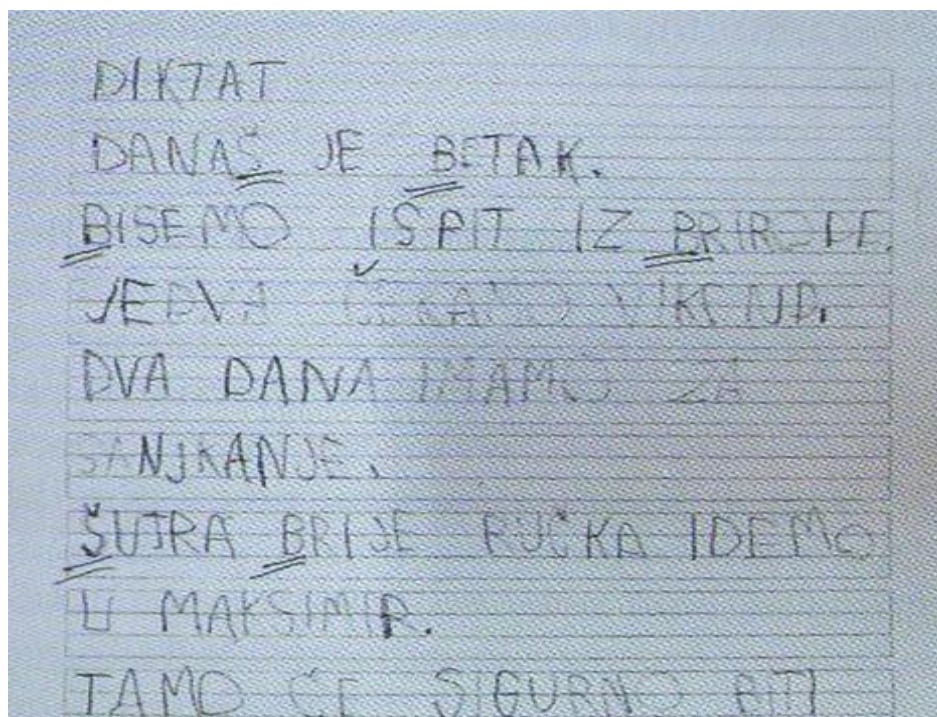 DIKTAT
DANAŠ JE BETAK.
BISEMO IŠPIT IZ BRIRODE.
JEDVA ČEKAMO VIKEND.
DVA DANA IMAMO ZA
SANJKANJE.
ŠUTRA BRIJE RUČKA IDEMO
U MAKSIMIR.
TAMO ĆE SIGURNO BITI